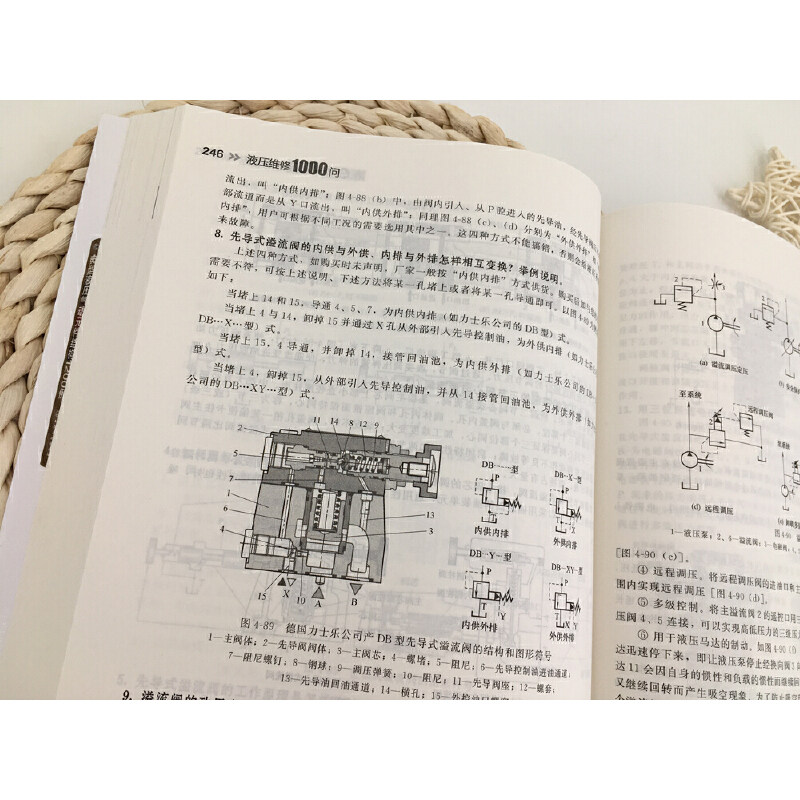 246 >> 液压维修1000问
流出，叫“内供内排”；图4-88（b）中，由阀内引入、从P腔进入的先导油，经先导
部流道而是从Y口流出，叫“内供外排”；同理图4-88（c）、（d）分别为“外供外排”
内排”，用户可根据不同工况的需要选用其中之一，这四种方式不能搞错，否则会
来故障。
8. 先导式溢流阀的内供与外供、内排与外排怎样相互变换？举例说明。
上述四种方式，如购买时未声明，厂家一般按“内供内排”方式供货。购买后
需要不符，可按上述说明、下述方法将某一孔堵上或者将某一孔导通即可。以图4-89
如下：
当堵上14和15，导通4、5、7，为内供内排（如力士乐公司的DB型）式。
当堵上4与14，卸掉15并通过X孔从外部引入先导控制油，为外供内排（如力士乐
DB…X…型）式。
当堵上15，4导通，并卸掉14，接管回油池，为内供外排（如力士乐公司的DB
型）式。
当堵上4，卸掉15，从外部引入先导控制油，并从14接管回油池，为外供外排
公司的DB…XY…型）式。
11 14 8 12 9
4
2
5
7
1
6
13
3
15 X 10 A B
DB……型
P
内供内排
DB…X…型
P
外供内排
DB…Y…型
P
Y
内供外排
DB…XY…型
P
外供外排
图4-89 德国力士乐公司产DB型先导式溢流阀的结构和图形符号
1—主阀体；2—先导阀阀体；3—主阀芯；4—螺堵；5—阻尼；6—先导控制油进油通道；
7—阻尼螺钉；8—钢球；9—调压弹簧；10—阻尼；11—先导阀座；12—螺套；
13—先导油回油通道；14—横孔；15—外控
9. 溢流阀的
2
1
(a) 溢流调压定压
至系统
远程调压阀
(d) 远程调压
1—液压泵；2、4—溢流阀；
图4-90
[图4-90（c）]。
④ 远程调压。将远程调压阀的进油口和主
围内实现远程调压[图4-90（d）。
⑤ 多级控制。将主溢流阀2的遥控口用三
压阀4、5连接，可以实现高低压力的三级压
⑥ 用于液压马达的制动。如图4-90（f）
达迅速停下来，即让液压泵停止经换向阀
达11会因自身的惯性和负载的惯性而继续回
又继续回转而产生吸空现象。为了防止吸空